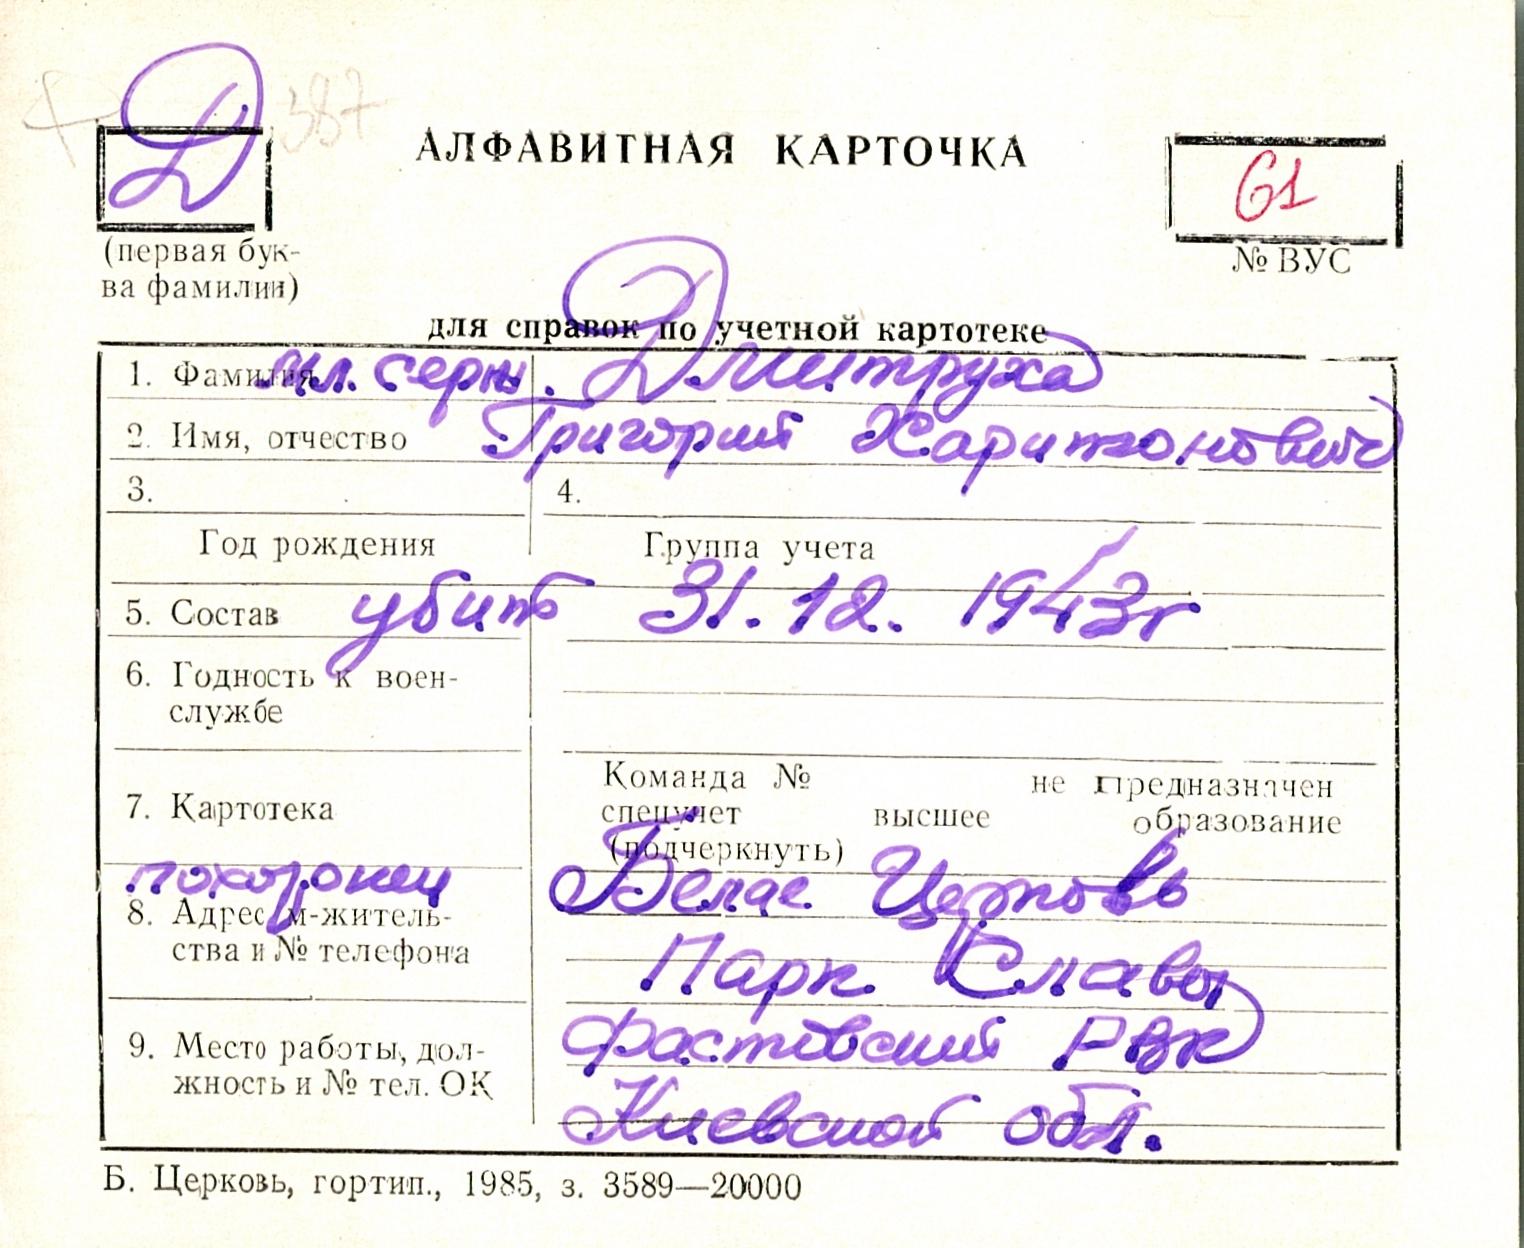 Д 387
АЛФАВИТНАЯ КАРТОЧКА
61
(первая бук-
ва фамилии)
№ ВУС
для справок по учетной картотеке
1. Фамилия мл. серж. Дмитруха
2. Имя, отчество Григорий Харитонович
3. 4.
Год рождения Группа учета
5. Состав убит 31.12.1943г
6. Годность к воен-
службе
Команда № не предназначен
7. Картотека спецучет высшее образование
(подчеркнуть)
похоронен Белая Церковь
8. Адрес м-житель-
ства и № телефона Парк Славы
9. Место работы, дол- Фастовский РВК
жность и № тел. ОК Киевской обл.
Б. Церковь, гортип., 1985, з. 3589—20000